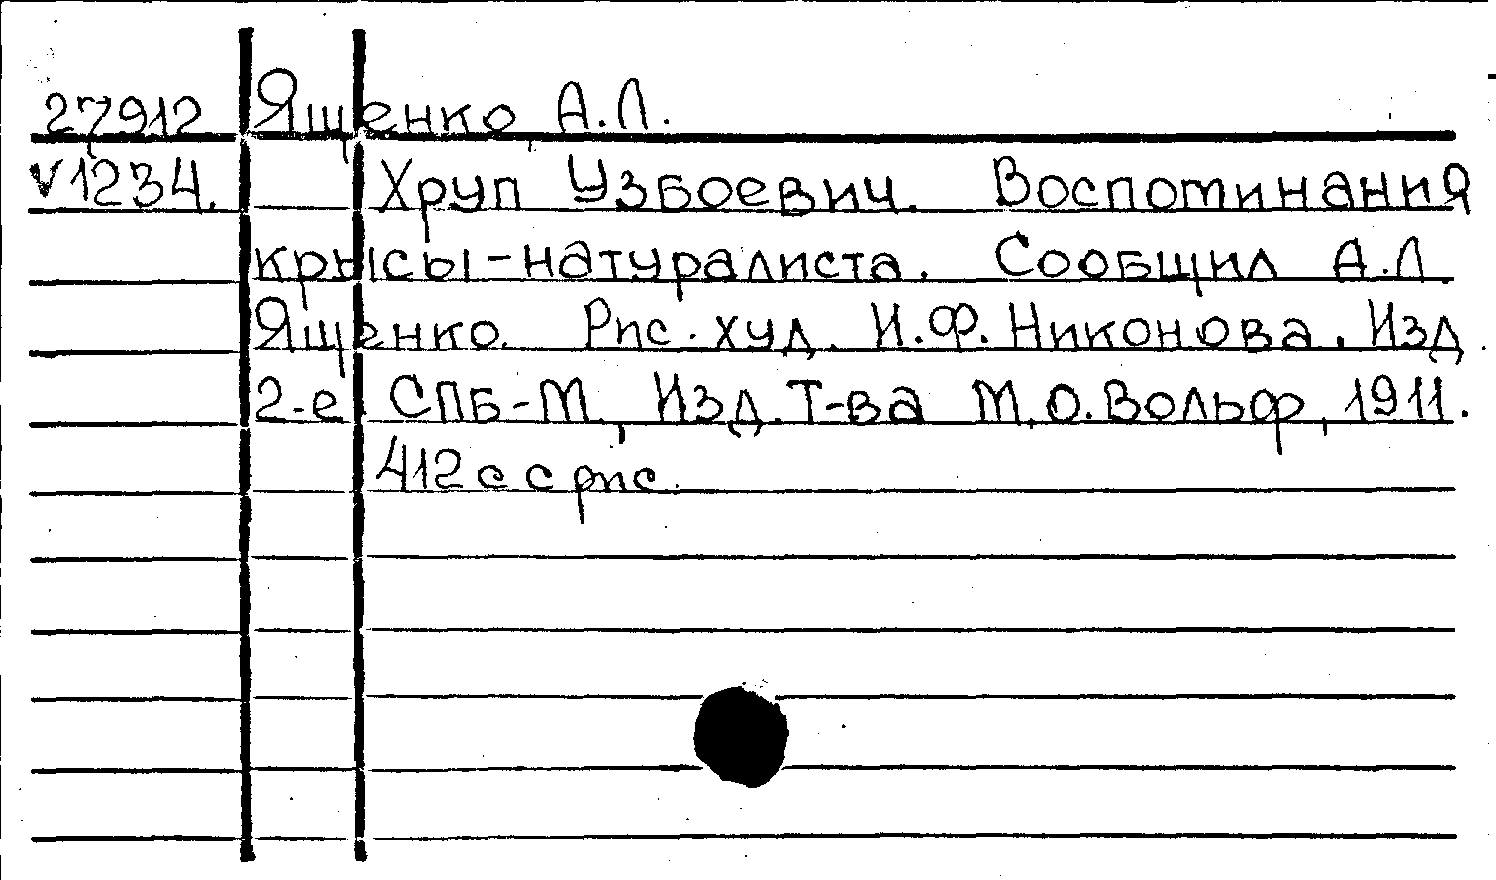 27912 Ященко А.Л.
V1234. Хруп Узбоевич. Воспоминания
крысы-натуралиста. Сообщил А.Л.
Ященко. Рис. худ. И.Ф. Никонова. Изд.
2-е. СПБ-М., Изд. Т-ва М.О. Вольф, 1911.
412 с с рис.